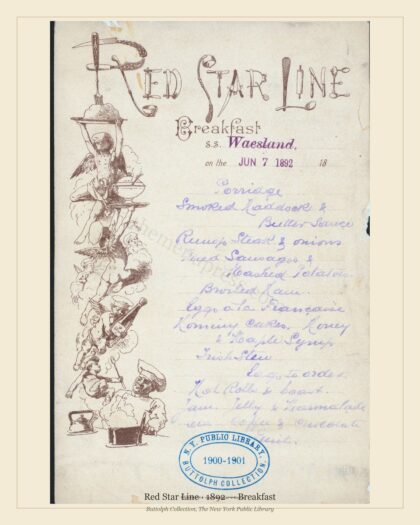 RED STAR LINE
Breakfast
S.S. Waesland,
on the JUN 7 1892 18
Porridge
Smoked Haddock &
Butter Sauce
Rump Steak & onions
Fried Sausages &
Mashed Potatoes
Broiled Ham
Eggs a la Française
Hominy Cakes, Honey
& Maple Syrup
Irish Stew
Eggs to order
Hot Rolls & toast.
Jam, Jelly & Marmalade
Coffee & Chocolate
N.Y. PUBLIC LIBRARY,
1900-1901
BUTTOLPH COLLECTION.
Red Star Line · 1892 — Breakfast
Buttolph Collection, The New York Public Library